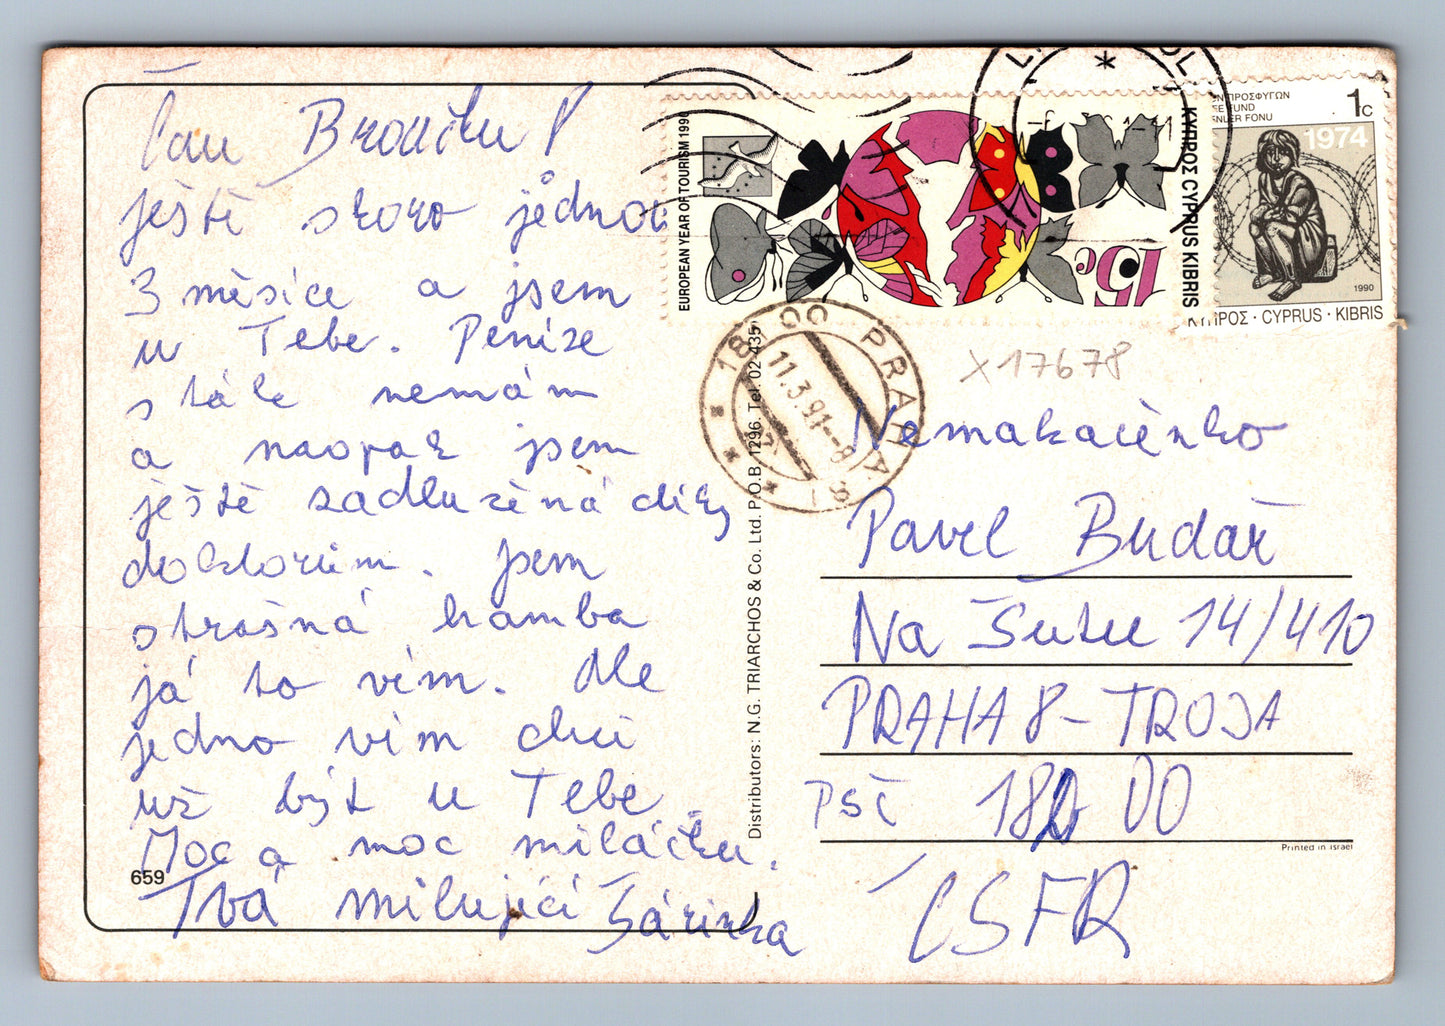 Čau Broučku!
ještě skoro jednou
3 měsíce a jsem
u Tebe. Peníze
stále nemám
a naopak jsem
ještě zadlužená díky
doktorům. Jsem
strašná hamba
já to vím. Ale
jedno vím chci
už být u Tebe.
Moc a moc miláčku.
Tvá milující Šárinka
659
Distributors: N.G. TRIARCHOS & Co. Ltd. P.O.B. 1296. Tel. 02-435
EUROPEAN YEAR OF TOURISM 1990
15c
ΚΥΠΡΟΣ CYPRUS KIBRIS
ΠΡΟΣΦΥΓΩΝ
FUND
FONU
1c
1974
1990
ΚΥΠΡΟΣ · CYPRUS · KIBRIS
18 00 PRAHA
11.3.91--8
X17678
Pavel Budař
Na Šutce 14/410
PRAHA 8 - TROJA
PSČ 182 00
Printed in Israel
ČSFR